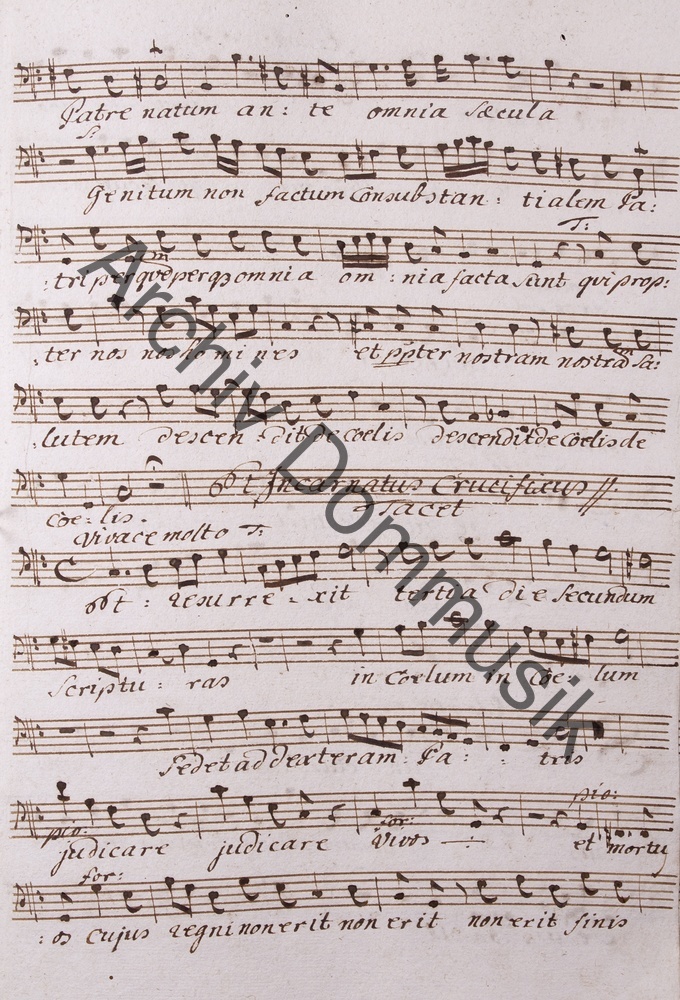 Patre natum an: te omnia sæcula
S.
Genitum non factum Consubstan: tialem Pa:
T:
:tri per omnia om: nia facta sunt qui prop:
:ter nos nos ho mi nes et ppter nostram nostrã Sa:
:lutem descen: dit de coelis descendit de coelis de
Coe: lis.
Et Incarnatus Crucifixus
tacet
Vivace molto T:
Et: resurre: xit tertia die Secundum
Scriptu: ras in Coelum in Coe: lum
Sedet ad dexteram Pa: tris
pio: for: pio:
judicare judicare vivos et mortu
for:
:os Cujus regni non erit non erit non erit finis
Archiv Dommusik